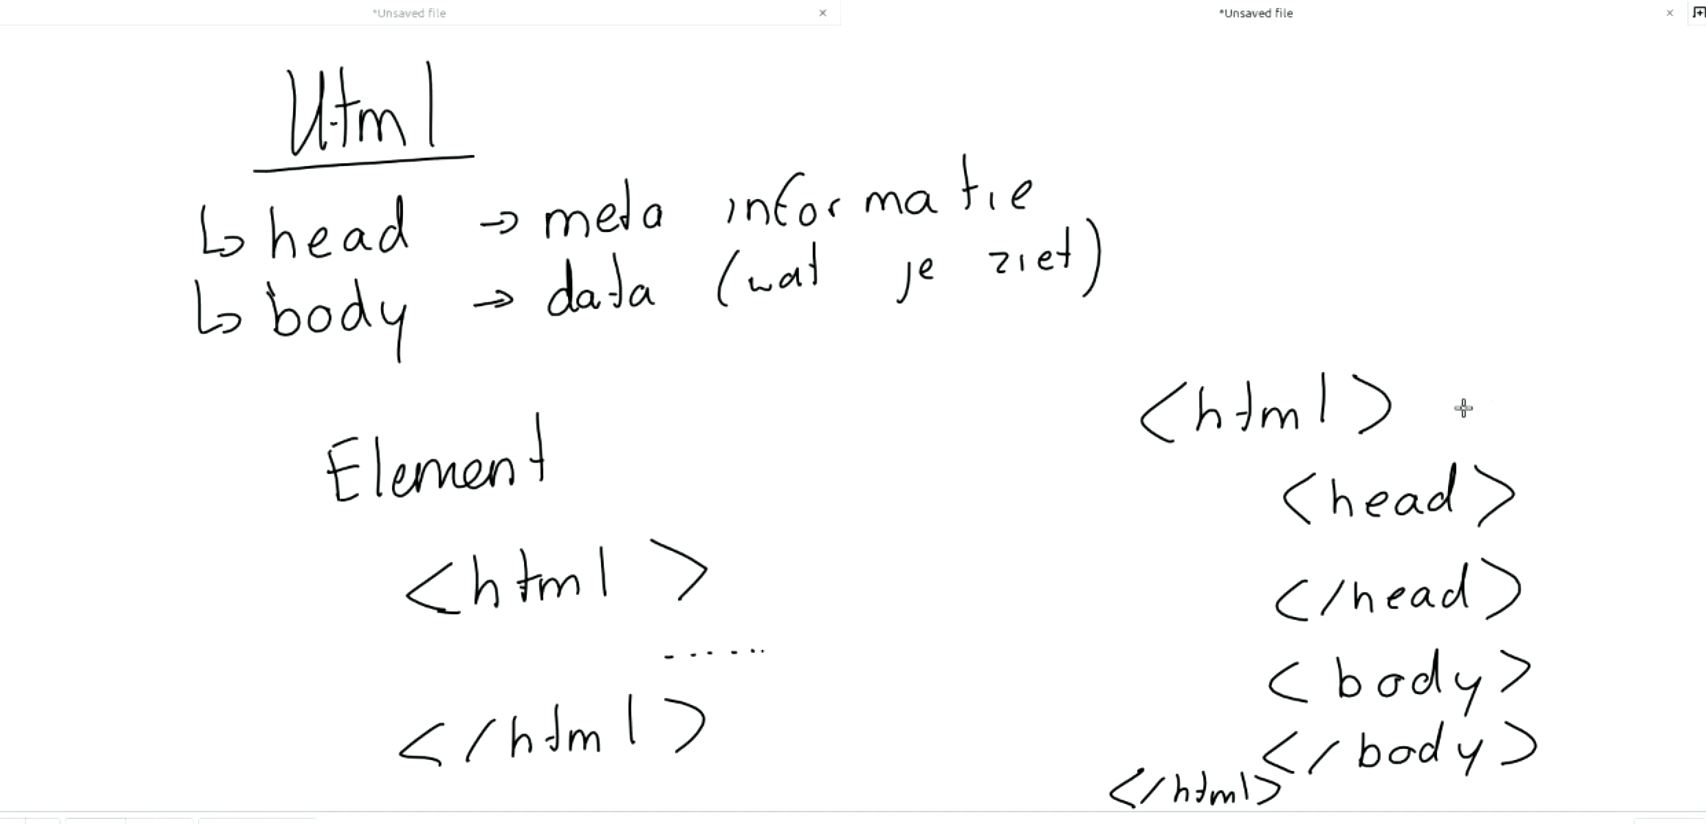 *Unsaved file × *Unsaved file ×
Html
↳ head → meta informatie
↳ body → data (wat je ziet)
Element
<html>
......
</html>
<html>
<head>
</head>
<body>
</body>
</html>